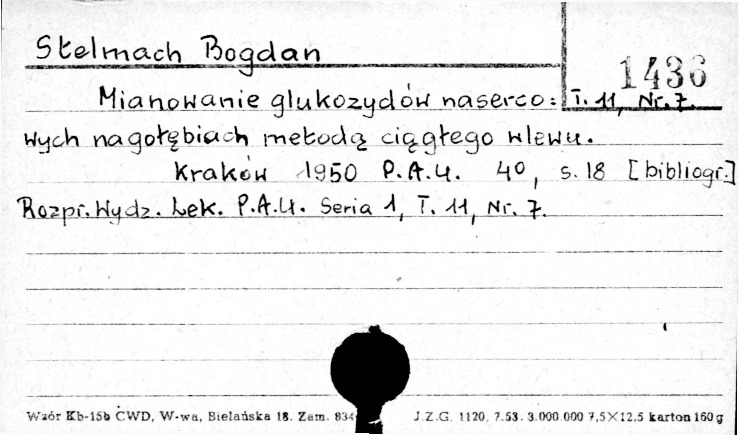 Stelmach Bogdan
1436
Mianowanie glukozydów naserco=
T. 11, Nr. 7.
wych na gołębiach metodą ciągłego wlewu.
Kraków 1950 P.A.U. 4⁰, s. 18 [bibliogr.]
Rozpr. Wydz. Lek. P.A.U. Seria 1, T. 11, Nr. 7.
Wzór Kb-15b CWD, W-wa, Bielańska 18. Zam. 834
J.Z.G. 1120. 7.53. 3.000.000 7,5×12,5 karton 160 g